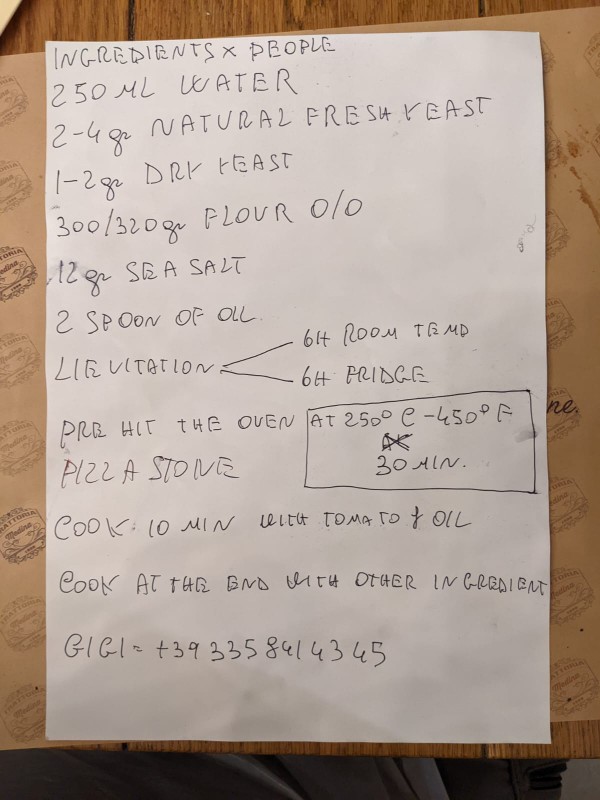 INGREDIENTS x PEOPLE
250 ML WATER
2-4 gr NATURAL FRESH YEAST
1-2 gr DRY YEAST
300/320 gr FLOUR 0/0
12 gr SEA SALT
2 SPOON OF OIL
LIEVITATION
6H ROOM TEMP
6H FRIDGE
PRE HIT THE OVEN AT 250° C - 450° F
30 MIN.
PIZZA STONE
COOK: 10 MIN WITH TOMATO & OIL
COOK AT THE END WITH OTHER INGREDIENT
GIGI = +39 335 8414345
TRATTORIA
Medina
ne.